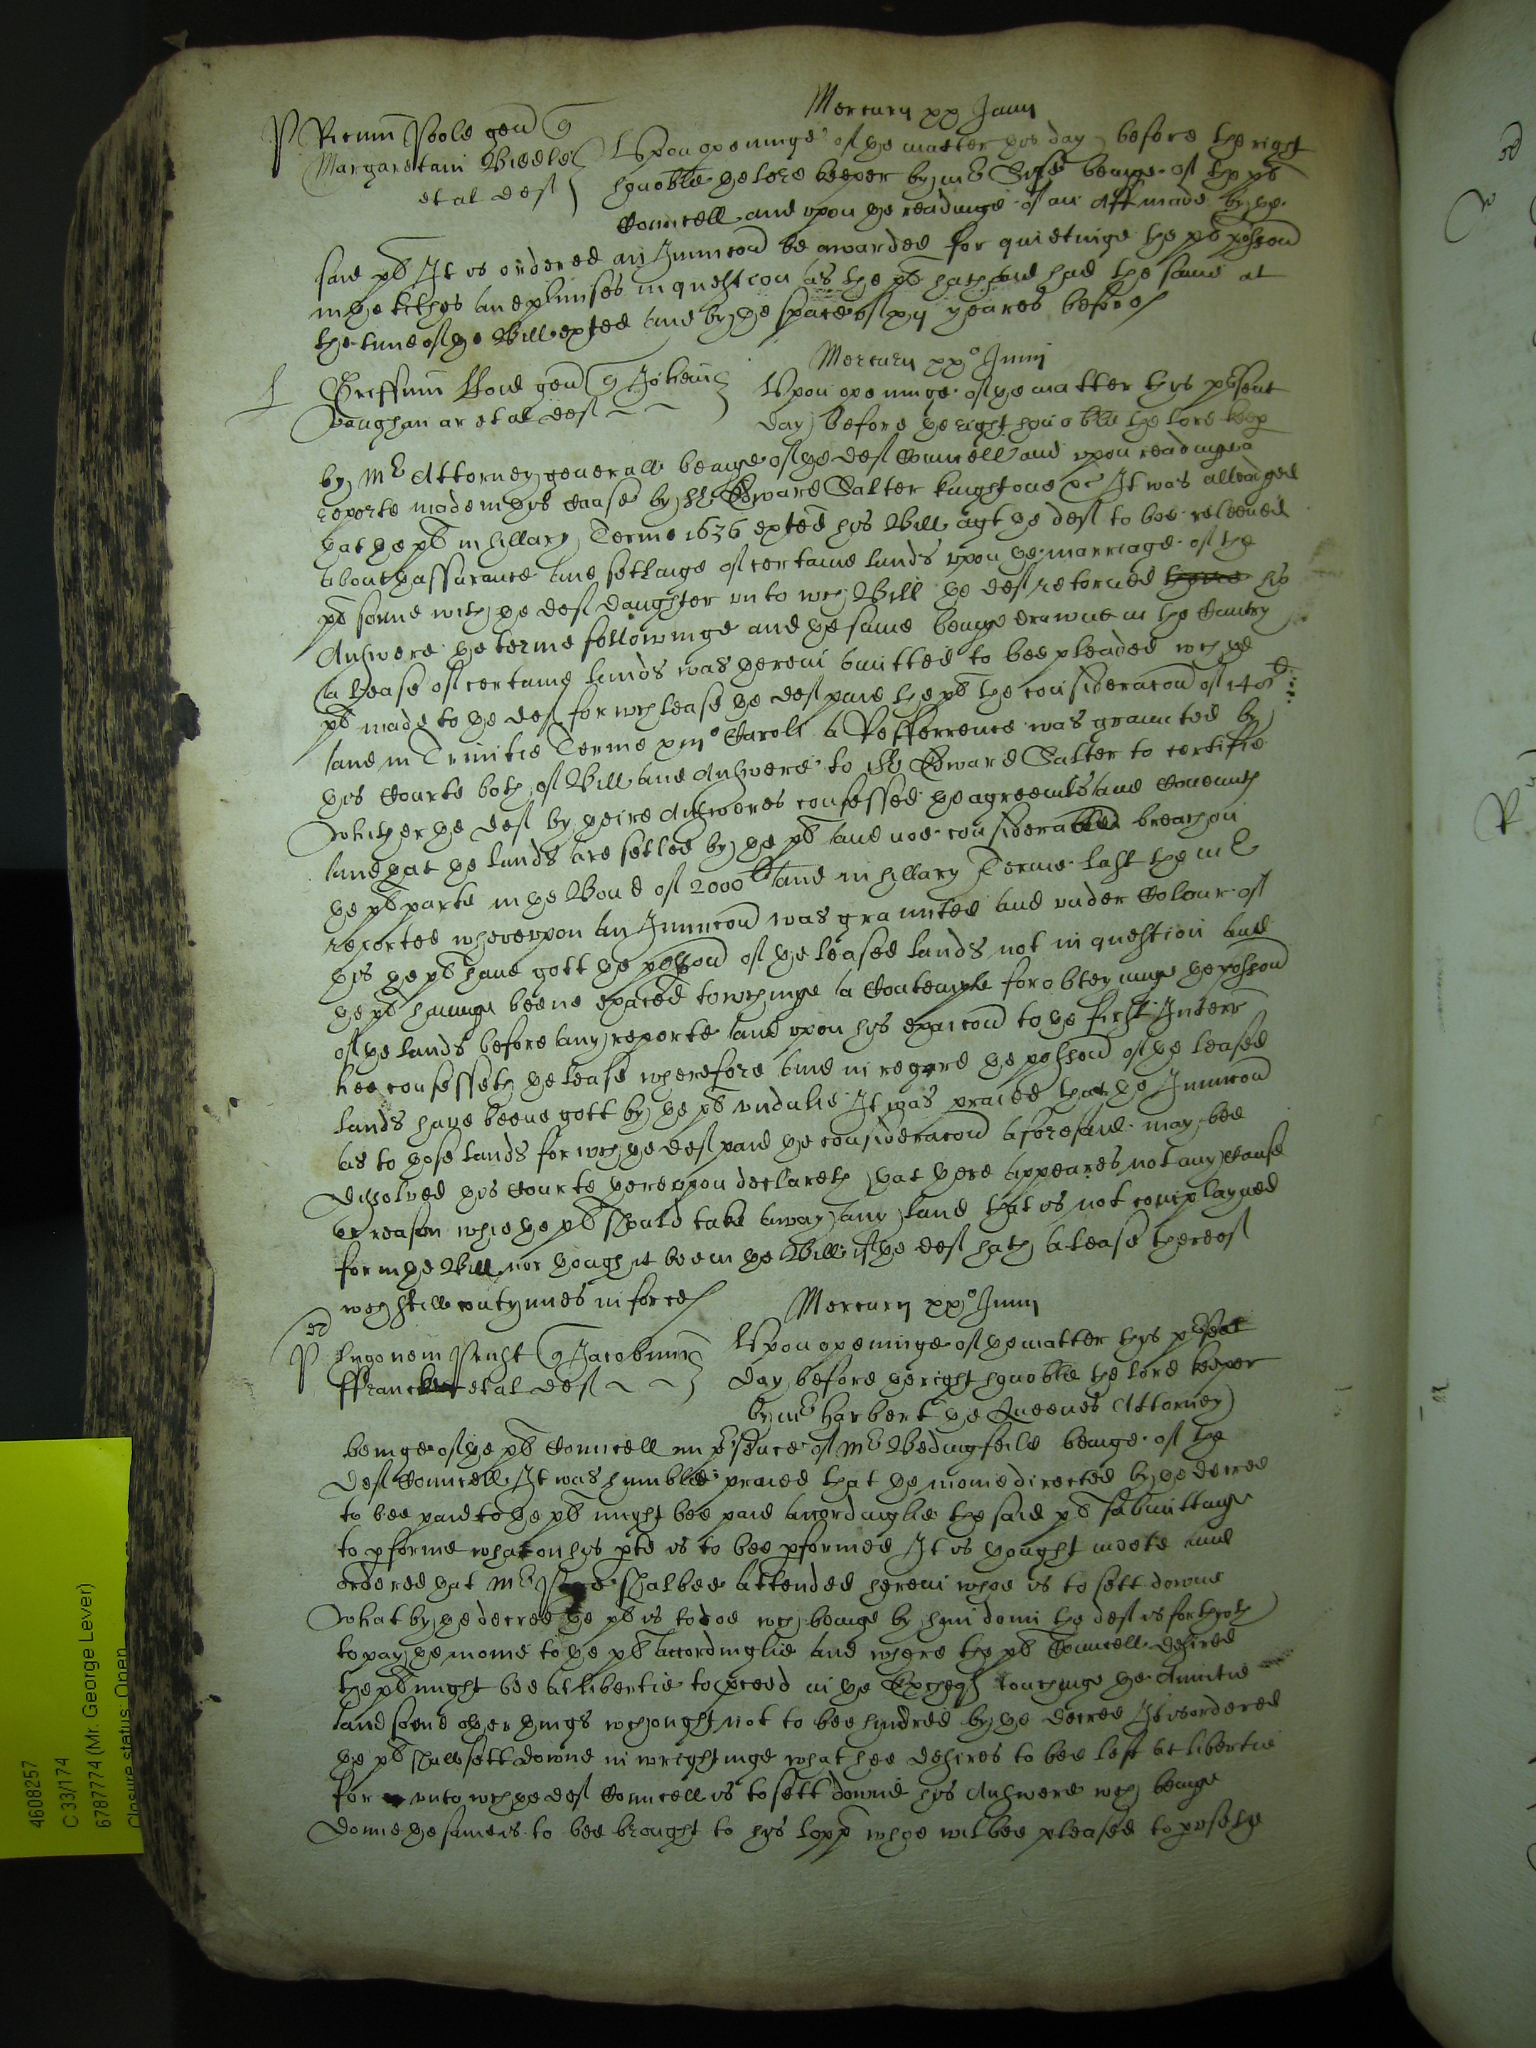 Mercurij xx Junij
P
Poole gen
Margaretam
et al def
Upon openinge of the matter this day before the right
honoble the lord keeper by mr beinge of the plt
Councell and upon the readinge of an Aff made by the
said plt It is ordered an Iniunccon be awarded for quietinge the plt possion
in the tithes and premises in question as the plt hath had the same at
the time of the Bill exted and by the space of yeares before
Mercurij xx° Junij
L
Griffinu gen Johem
Vaughan ar et al def
Upon openinge of the matter this present
day before the right honoble the lord keep
by Mr Attorney generall beinge of the def Councell and upon readinge a
reporte made in this cause by Sr Edward Salter knight one &c It was alleadged
that the plt in hillary Terme 1636 exted his Bill agt the def to bee releeved
about assurance and setlinge of certaine lands upon the marriage of the
plt sonne with the def daughter unto wch Bill the def retorned his
Answere the terme followinge and the same beinge drawne in the Cuntry
a Lease of certaine lands was therein omitted to bee pleaded wch the
plt made to the def for wch lease the def paid the plt the consideracon of 140li
and in Trinitie Terme Caroli a Refferrence was graunted by
this Courte both of Bill and Answere to Sr Edward Salter to certifie
whither the def by theire Answeres confessed the agreemts and Covennts
and that the lands are setled by the plt and noe considerable breach on
the plt parte in the Bond of 2000li and in hillary Terme last the mr
reported whereupon an Iniunccon was graunted and under Colour of
this the plt have gott the possion of the leased lands not in question and
the plt havinge beene exaied towchinge a Contempte for obteyninge the possion
of the lands before any reporte and upon his exaicon to the first Interr
hee confesseth the lease wherefore and in regard the possion of the leased
lands have beene gott by the plt undulie It was praied that the Iniunccon
as to those lands for wch the def paid the consideracon aforesaid may bee
dissolved this Courte thereupon declareth that there appeares not any cause
or reason whie the plt should take away any land that is not complayned
for in the Bill nor though it bee in the Bill if the def hath a lease thereof
wch still contynues in force
Mercurij xx° Junij
P
Hugonem Jacobum
ffrancke et al def
Upon openinge of the matter this present
day before the right honoble the lord keeper
by mr Harbert the Queenes Attorney
beinge of the plt Councell in presence of Mr Bedingfeild beinge of the
def Councell It was humblie praied that the monie directed by the decree
to bee paid to the plt might bee paid accordinglie the said plt submittinge
to pforme what on his pte is to bee pformed It is thought meete and
ordered that Mr Page shalbee attended herein whoe is to sett downe
what by the decree the plt is to doe wch beinge by him donn the def is forthwth
to pay the monie to the plt accordinglie and where the plt Councell desired
the plt might bee at libertie to pceed in the Excheqr touchinge the Annuitie
and some other things wch ought not to bee hindred by the decree It is ordered
the plt shall sett downe in wrightinge what hee desires to bee left at libertie
for unto wch the def Councell is to sett downe his Answere wch beinge
donne the same is to bee brought to his lopp whoe wilbee pleased to puse the
4608257
C 33/174
6787774 (Mr. George Lever)
Closure status: Open